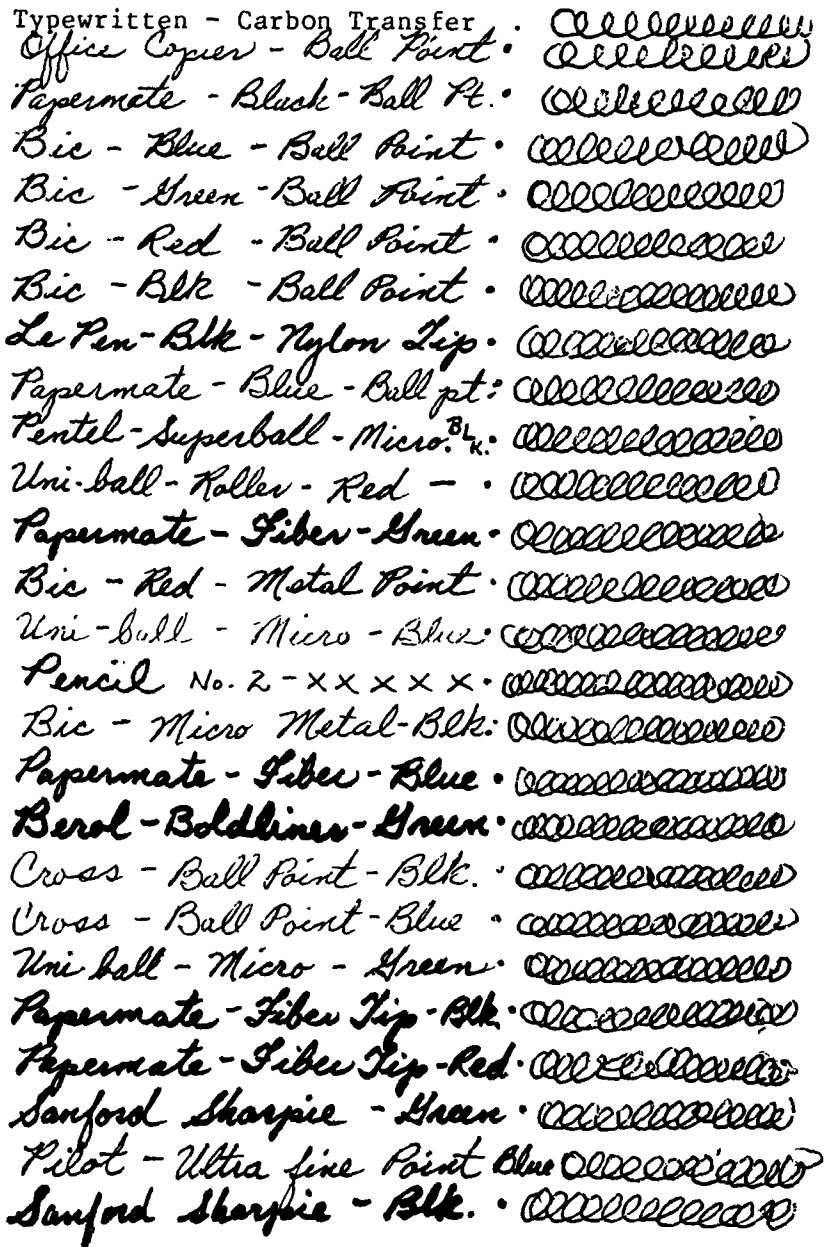 Typewritten - Carbon Transfer .
Office Copier - Ball Point .
Papermate - Black - Ball Pt. .
Bic - Blue - Ball Point .
Bic - Green - Ball Point .
Bic - Red - Ball Point .
Bic - Blk - Ball Point .
Le Pen - Blk - Nylon Tip .
Papermate - Blue - Ball pt. .
Pentel - Superball - Micro. BLK. .
Uni-ball - Roller - Red - .
Papermate - Fiber - Green .
Bic - Red - Metal Point .
Uni-ball - Micro - Blue .
Pencil No. 2 - x x x x x .
Bic - Micro Metal - Blk. .
Papermate - Fiber - Blue .
Berol - Boldliner - Green .
Cross - Ball Point - Blk. .
Cross - Ball Point - Blue .
Uni ball - Micro - Green .
Papermate - Fiber Tip - Blk .
Papermate - Fiber Tip - Red .
Sanford Sharpie - Green .
Pilot - Ultra fine Point Blue
Sanford Sharpie - Blk. .